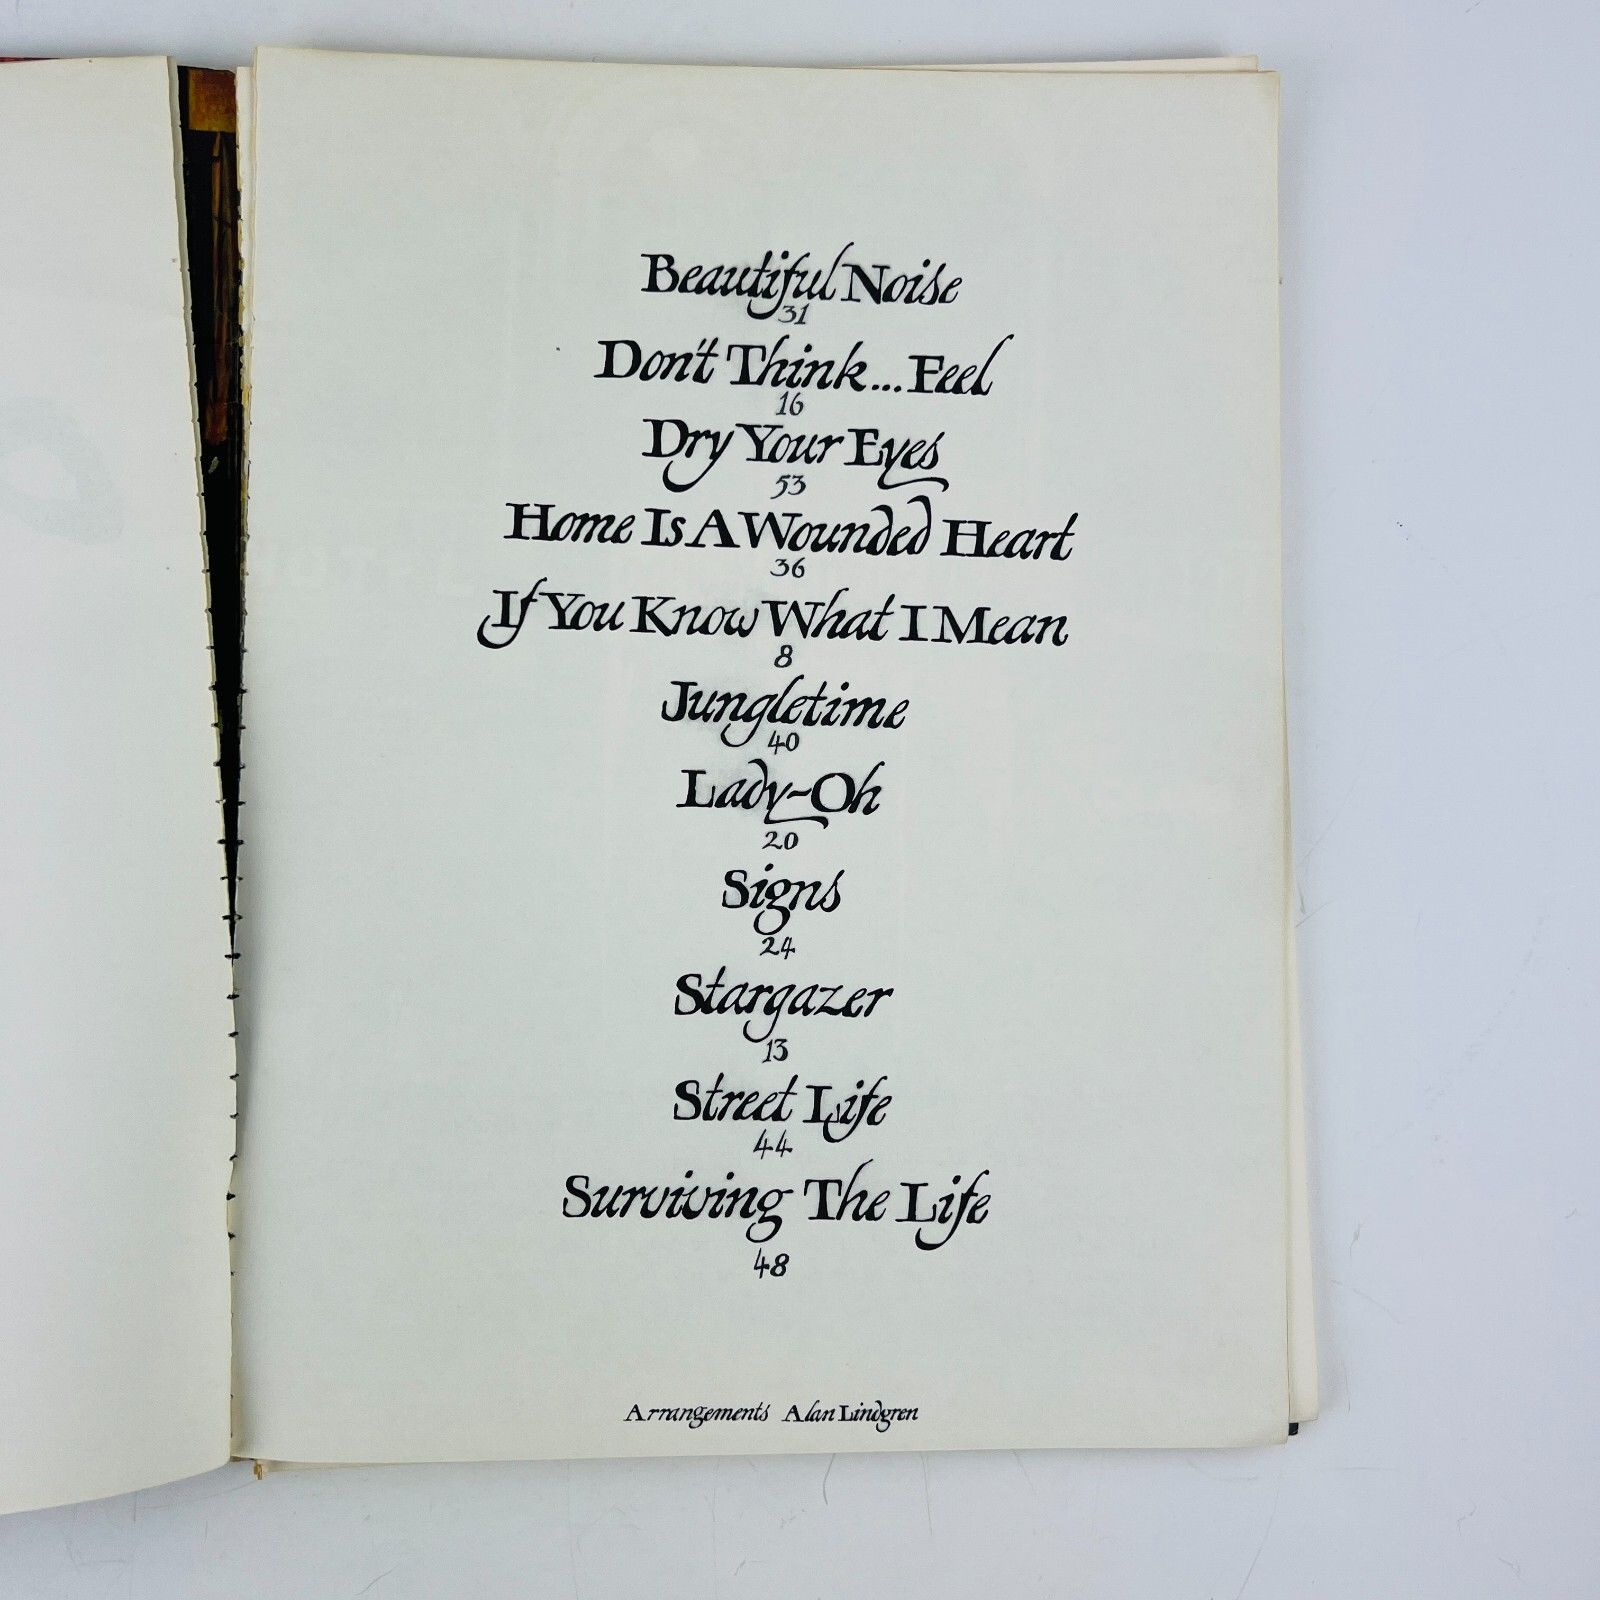 Beautiful Noise
31
Don't Think...Feel
16
Dry Your Eyes
53
Home Is A Wounded Heart
36
If You Know What I Mean
8
Jungletime
40
Lady-Oh
20
Signs
24
Stargazer
13
Street Life
44
Surviving The Life
48
Arrangements Alan Lindgren